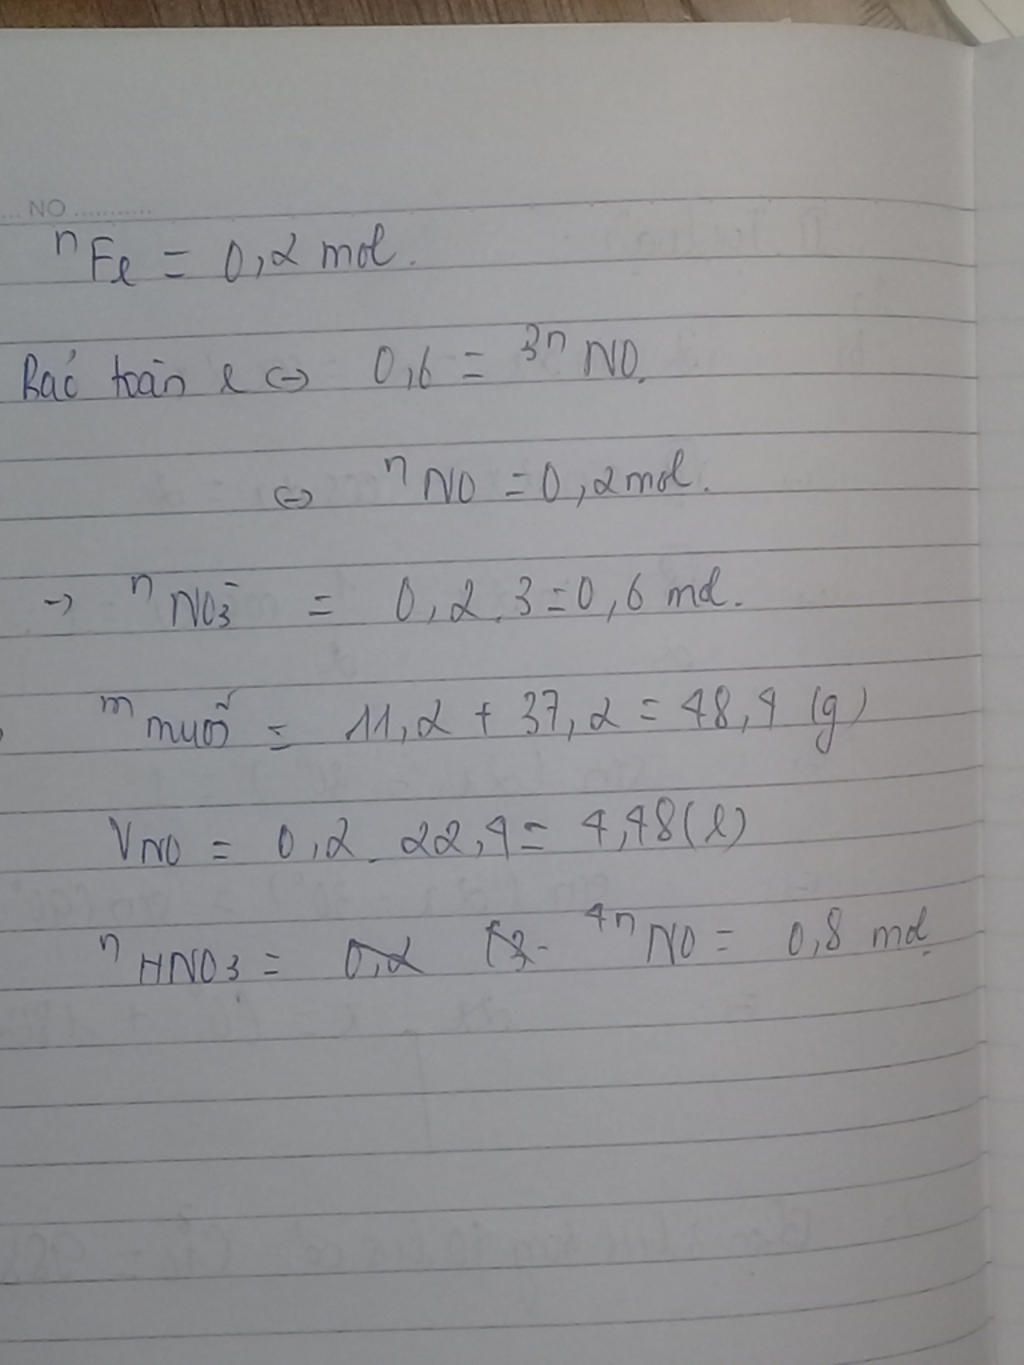 ... NO ............
nFe = 0,2 mol.
Bảo toàn e <=> 0,6 = 3nNO.
<=> nNO = 0,2 mol.
-> nNO3- = 0,2.3 = 0,6 mol.
m muối = 11,2 + 37,2 = 48,4 (g)
VNO = 0,2 . 22,4 = 4,48 (l)
nHNO3 = 0,2 4nNO = 0,8 mol